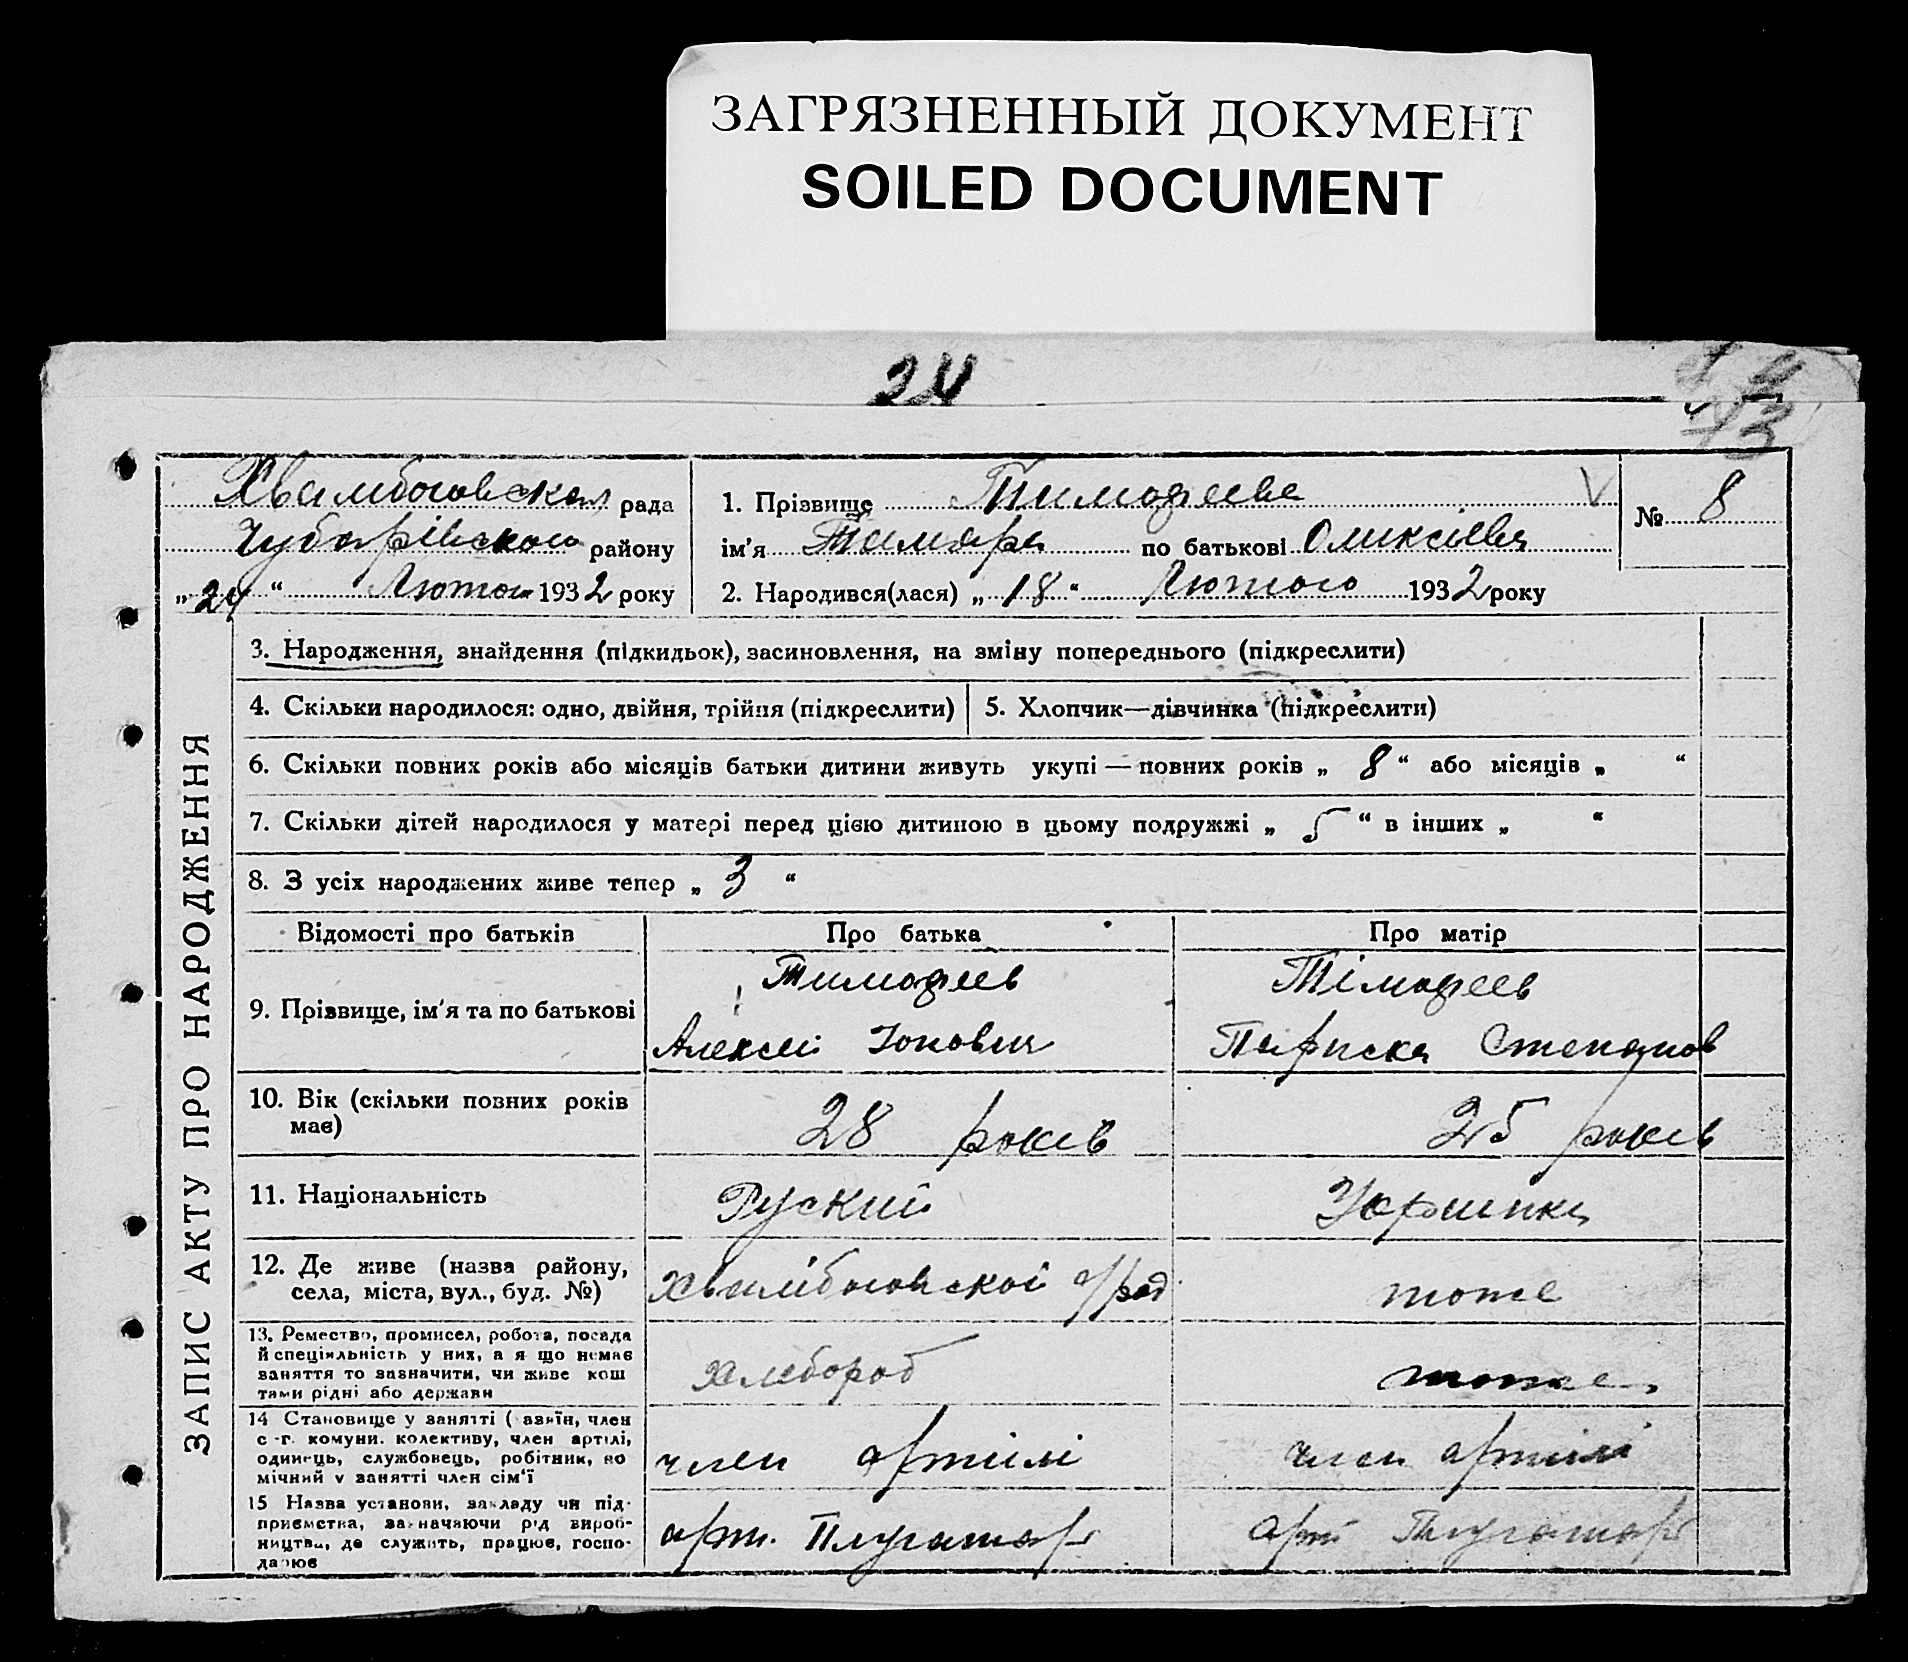 ЗАГРЯЗНЕННЫЙ ДОКУМЕНТ
SOILED DOCUMENT
24
73
ЗАПИС АКТУ ПРО НАРОДЖЕННЯ
рада
Чубарівского району
„24“ Лютого 1932 року
1. Прізвище Тимофеева
ім'я Тамара по батькові Оликсіевна
2. Народився(лася) „18“ Лютого 1932 року
№ 8
3. Народження, знайдення (підкидьок), засиновлення, на зміну попереднього (підкреслити)
4. Скільки народилося: одно, двійня, трійня (підкреслити) 5. Хлопчик—дівчинка (підкреслити)
6. Скільки повних років або місяців батьки дитини живуть укупі — повних років „8“ або місяців „ “
7. Скільки дітей народилося у матері перед цією дитиною в цьому подружжі „5“ в інших „ “
8. З усіх народжених живе тепер „3“
Відомості про батьків Про батька Про матір
9. Прізвище, ім'я та по батькові
Тимофеев
Алексей Іонович
Тімофеев
Параска Степанов
10. Вік (скільки повних років
має)
28 років
25 років
11. Національність Руский Украинка
12. Де живе (назва району,
села, міста, вул., буд. №)
тоже
13. Ремество, промисел, робота, посада
й спеціяльність у них, а я що немає
заняття то зазначити, чи живе кош
тами рідні або держави
хлебороб
тоже
14 Становище у занятті ( азяїн, член
с -г. комуни. колективу, член артілі,
одинець, службовець, робітник, по
мічний у занятті член сім'ї
член артилі
член артилі
15 Назва установи, закладу чи під-
приємства, зазначаючи рід вироб-
ництва, де служить, працює, госпо-
дарює
арт. Плугатар
арт Плугатар